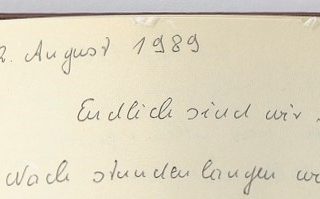 2. August 1989
Endlich sind wir
Nach stundenlangen